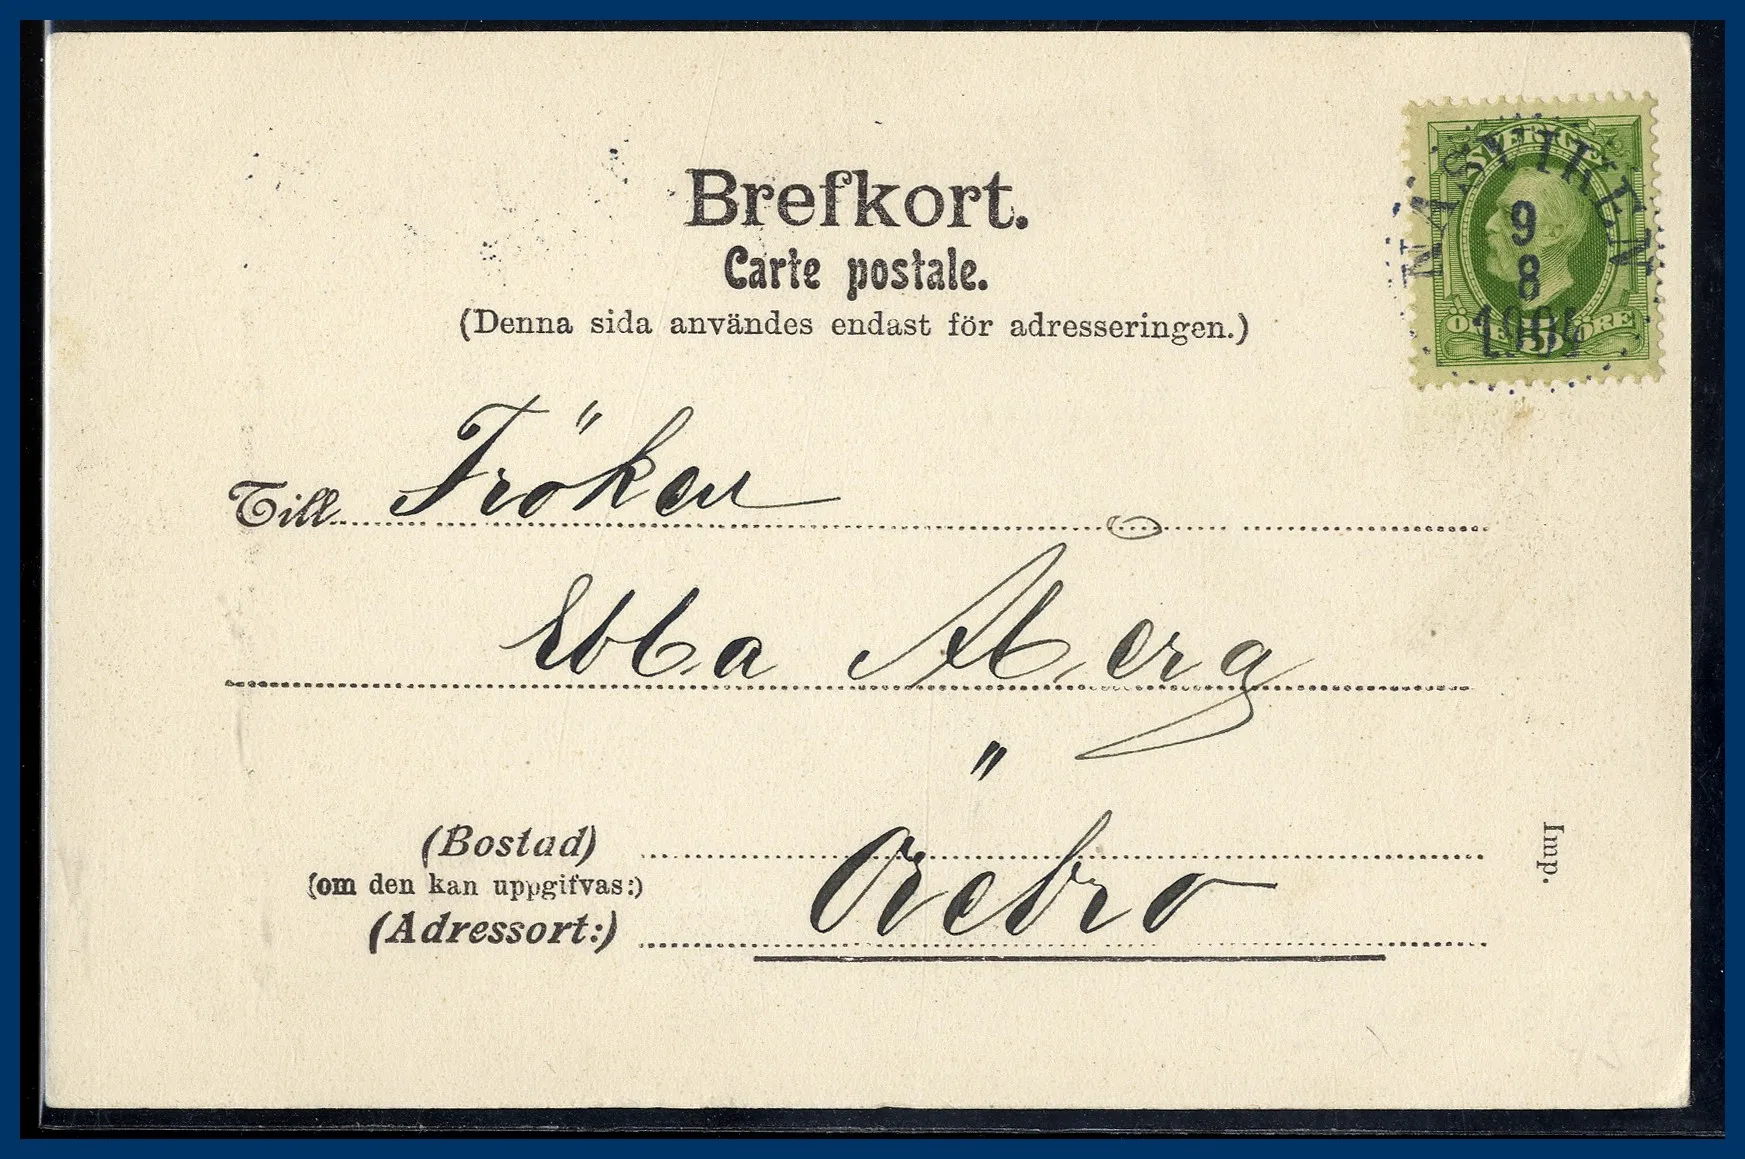 Brefkort.
Carte postale.
(Denna sida användes endast för adresseringen.)
SVERIGE
ÖRE 5 ÖRE
NÄSVIKEN
9
8
1904
Till Fröken
Ebba Åberg
(Bostad)
(om den kan uppgifvas:)
(Adressort:) Örebro
Imp.